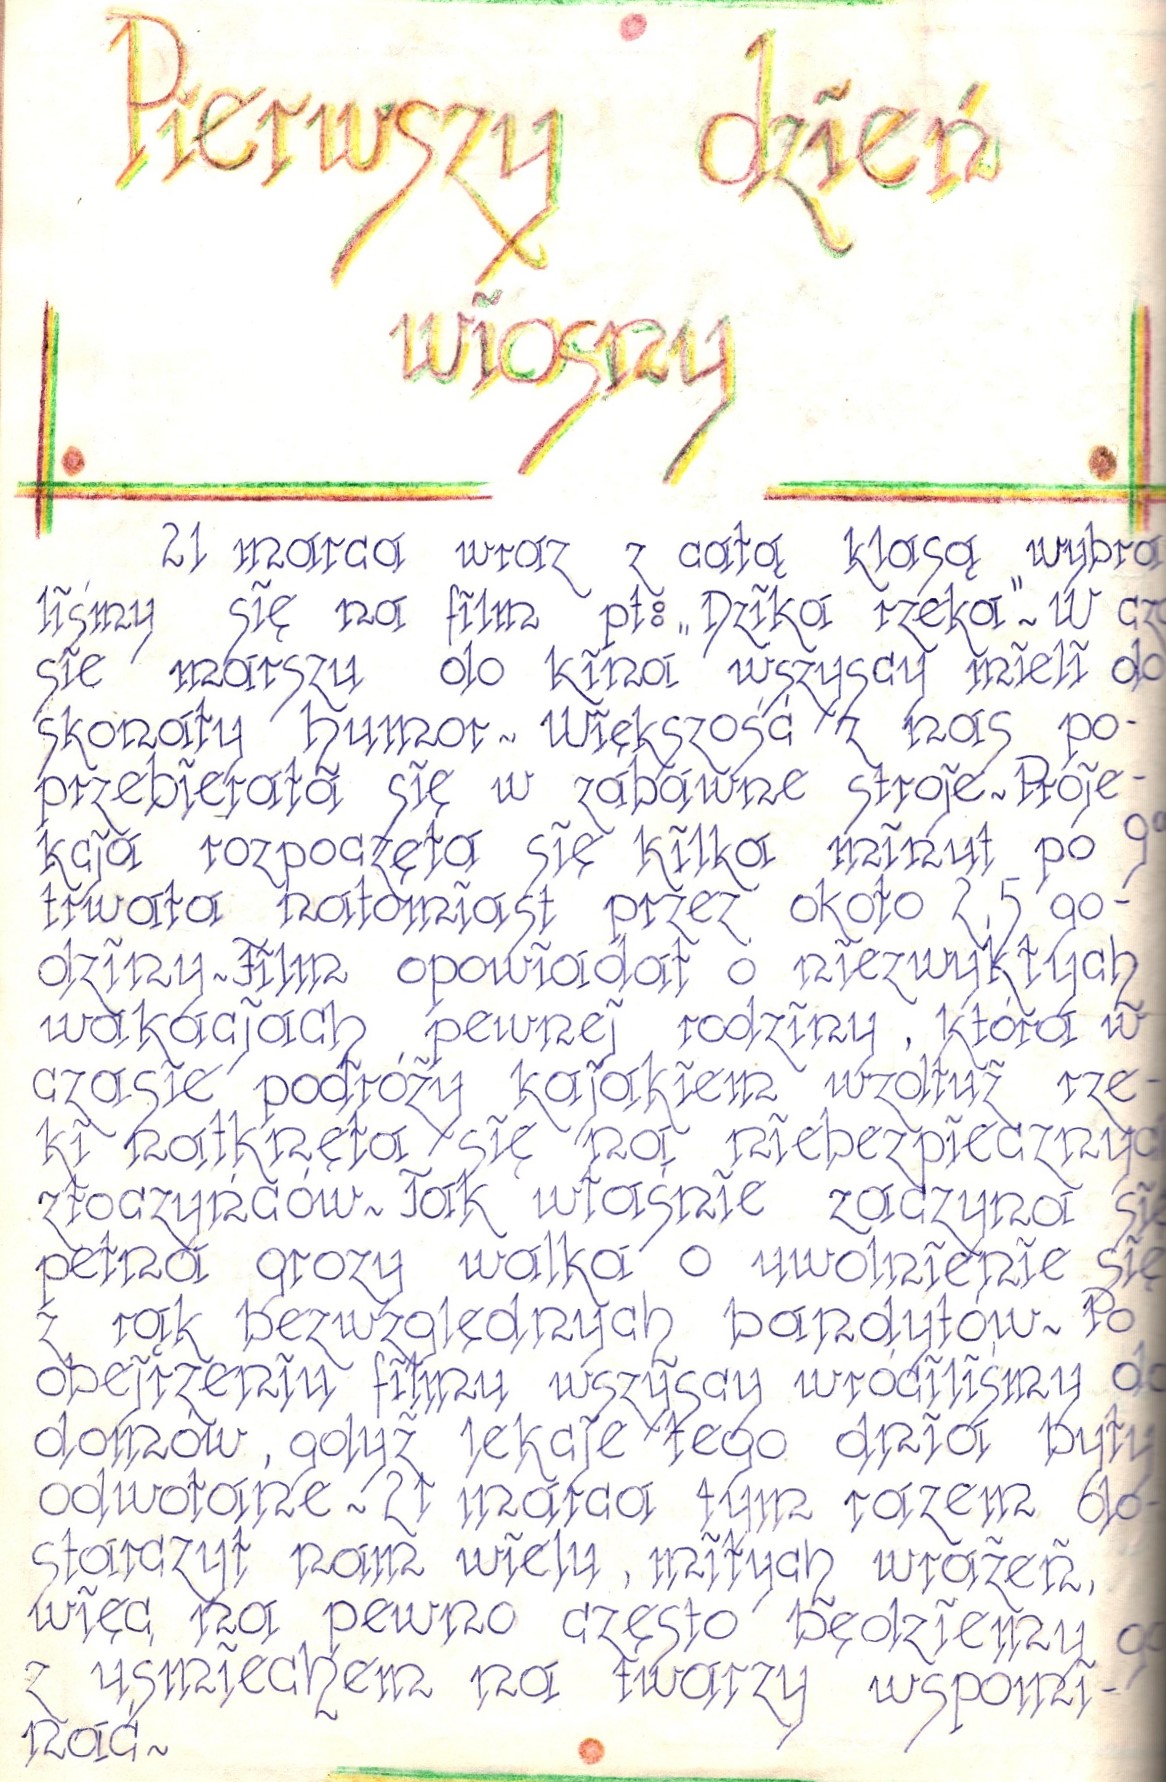 Pierwszy dzień
wiosny
21 marca wraz z całą klasą wybra
liśmy się na film pt: „Dzika rzeka”~ W cza
sie marszu do kina wszyscy mieli do
skonały humor~ Większość z nas po-
przebierała się w zabawne stroje~ Proje-
kcja rozpoczęła się kilka minut po 9⁰
trwała natomiast przez około 2,5 go-
dziny~ Film opowiadał o niezwykłych
wakacjach pewnej rodziny, która w
czasie podróży kajakiem wzdłuż rze-
ki natknęła się na niebezpiecznych
złoczyńców~ Tak właśnie zaczyna się
pełna grozy walka o uwolnienie się
z rąk bezwzględnych bandytów~ Po
obejrzeniu filmu wszyscy wróciliśmy do
domów, gdyż lekcje tego dnia były
odwołane~ 21 marca tym razem do-
starczył nam wielu, miłych wrażeń,
więc na pewno często będziemy go
z uśmiechem na twarzy wspomi-
nać~